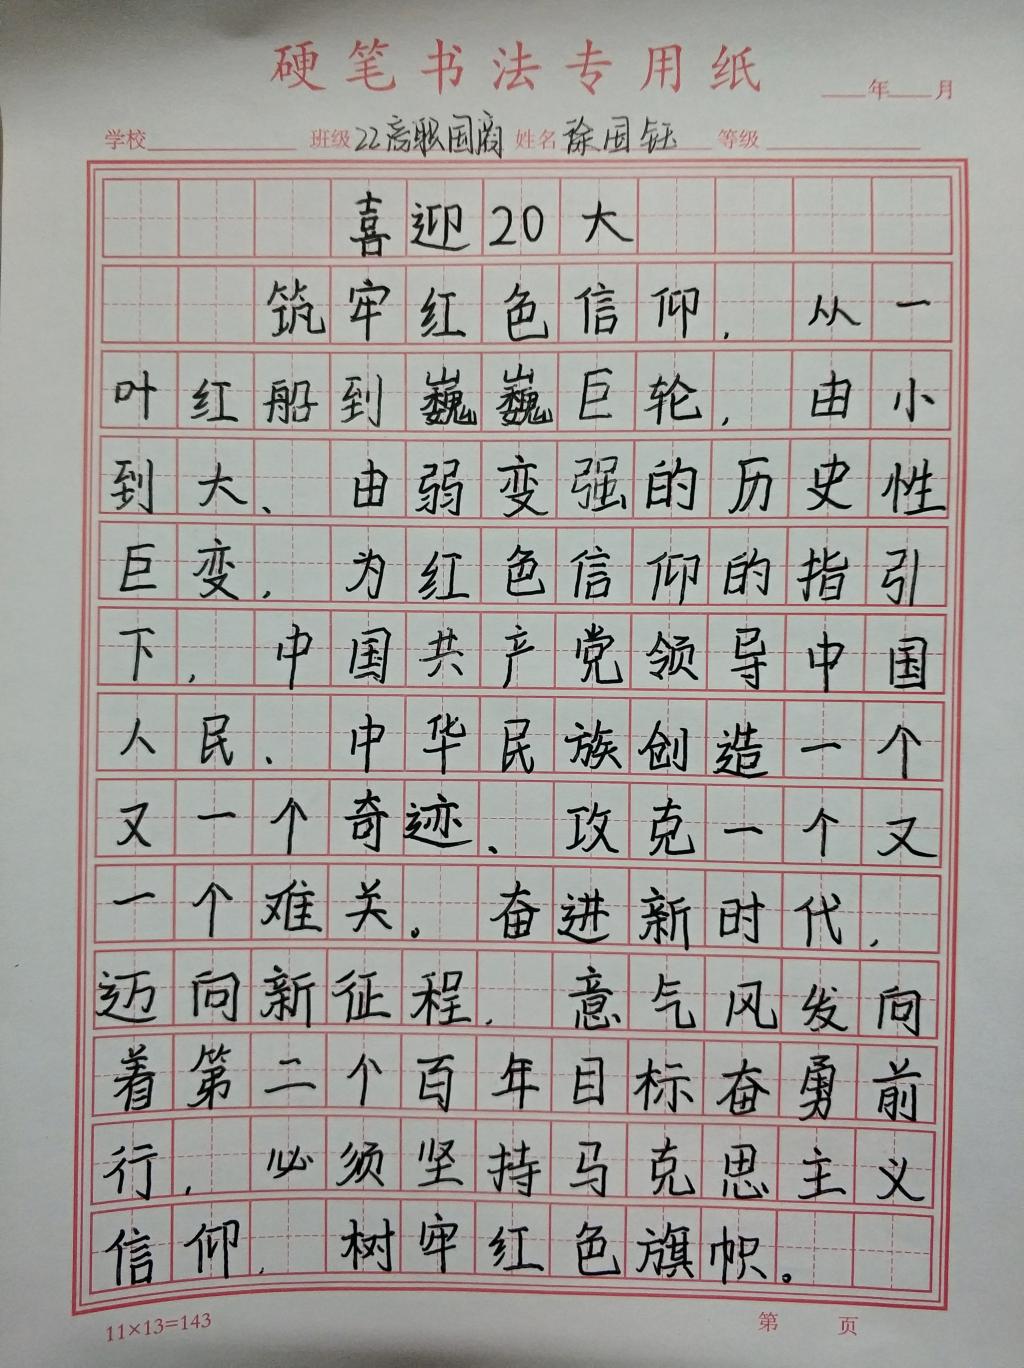 硬笔书法专用纸
年 月
学校 班级 22高职国商 姓名 徐国钰 等级
喜迎20大
筑牢红色信仰，从一
叶红船到巍巍巨轮，由小
到大、由弱变强的历史性
巨变，为红色信仰的指引
下，中国共产党领导中国
人民、中华民族创造一个
又一个奇迹、攻克一个又
一个难关。奋进新时代，
迈向新征程，意气风发向
着第二个百年目标奋勇前
行，必须坚持马克思主义
信仰，树牢红色旗帜。
11×13=143 第 页